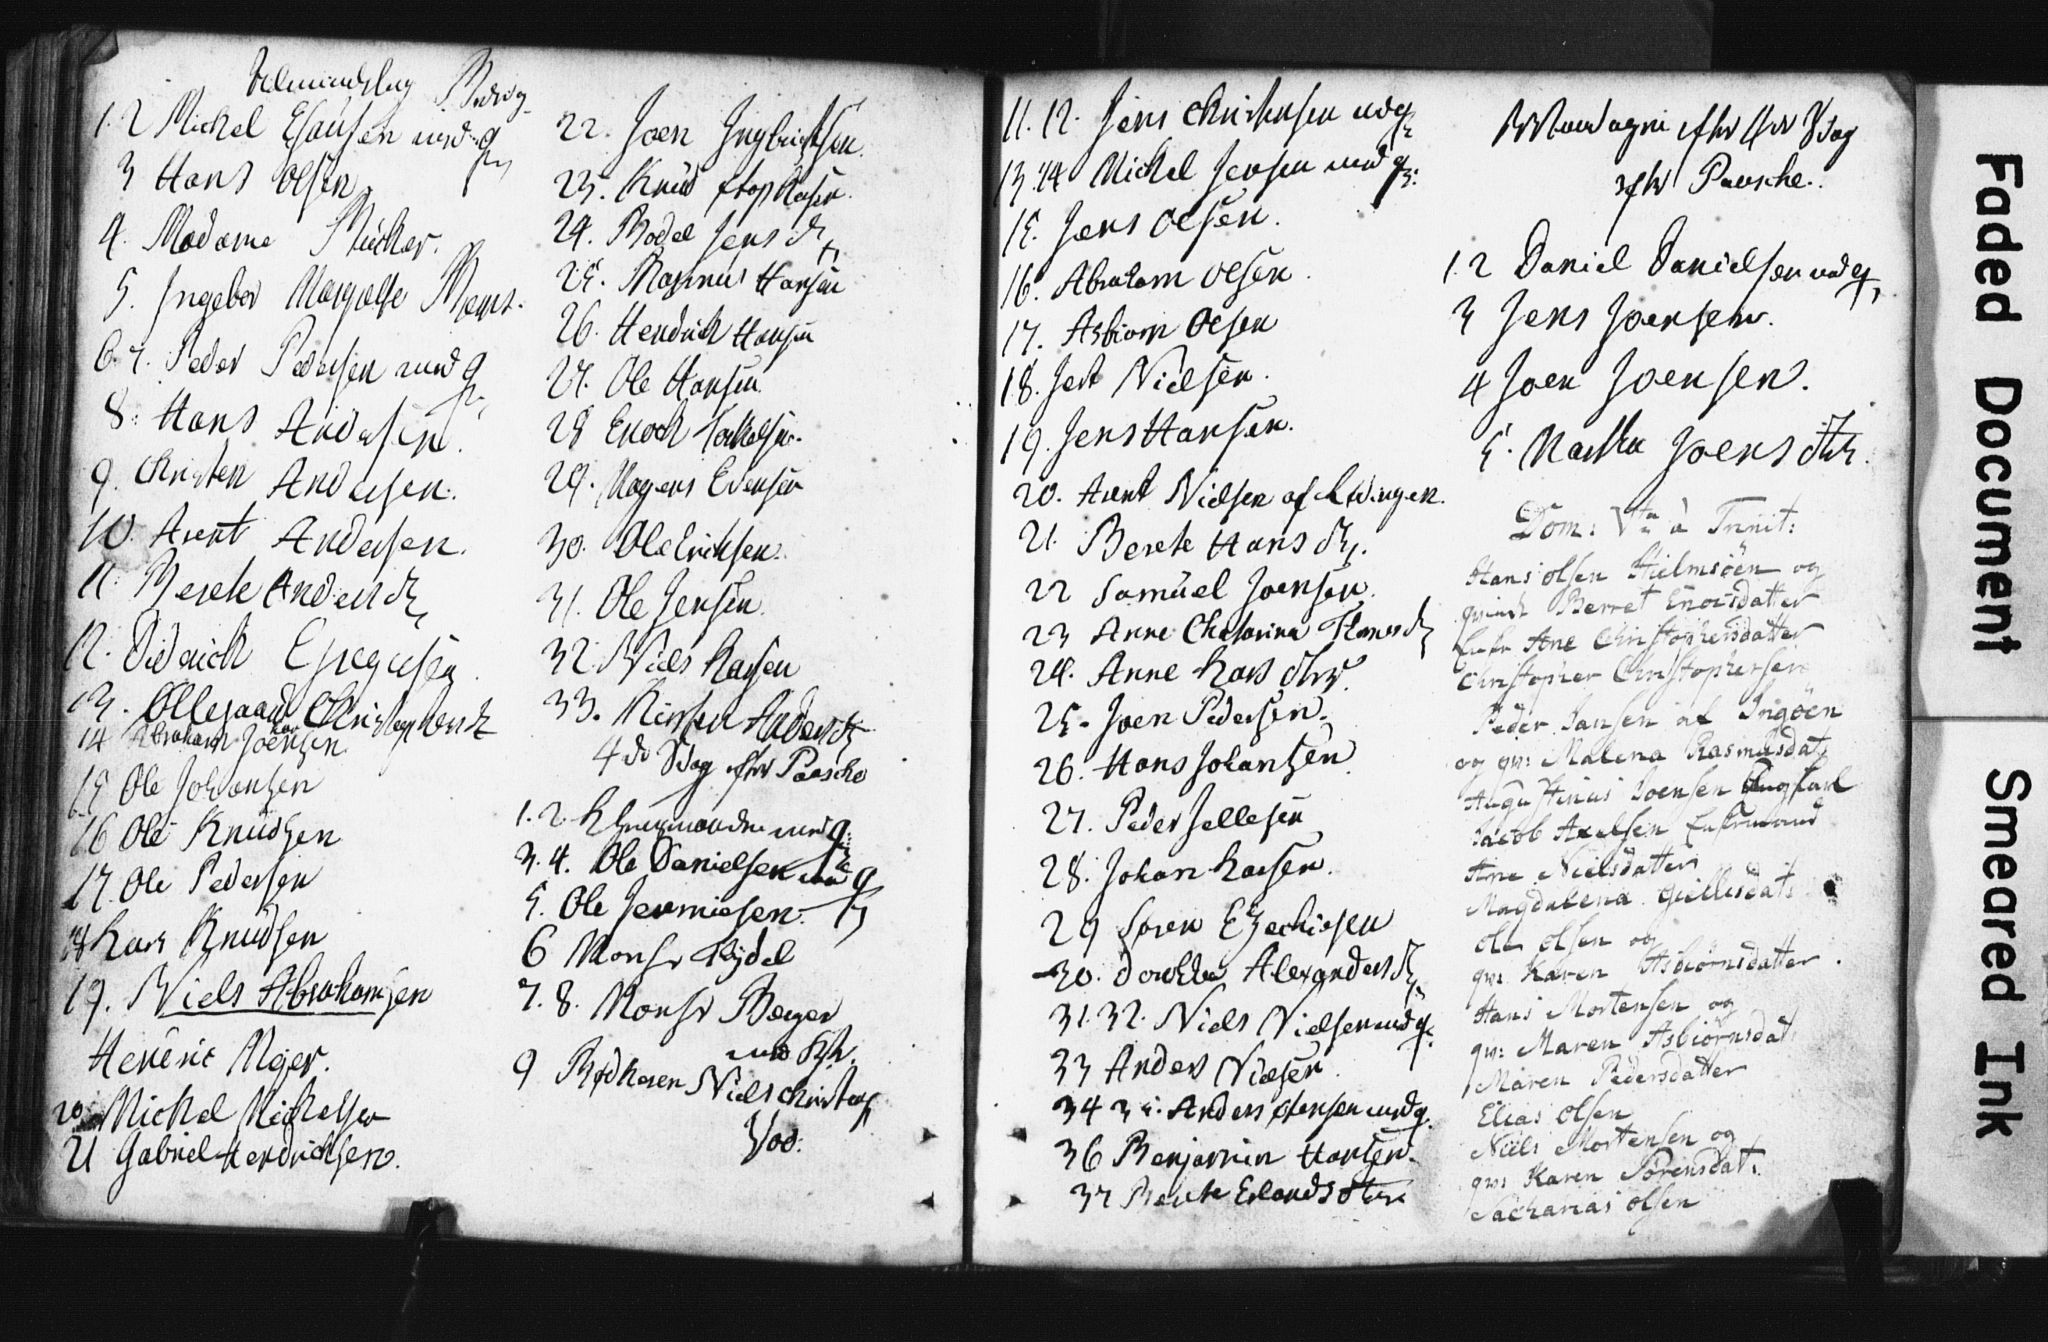 1. 2 Michel Esausen med q
3 Hans Olsen
4. Madame
5. Ingebor Margrete
6. 7. Peder Pedersen med q
8: Hans Andersen.
9. Christen Andersen.
10. Arent Andersen.
11. Berete Andersd
12. Diderich
13. Ollegaard Christophersd
14 Abraham Joensen
15 Ole Johansen
16 Ole Knudsen
17. Ole Pedersen
18 Lars Knudsen
19. Niels Abrahamsen
Meyer.
20 Michel Michelsen
21 Gabriel Hendrichsen.
22. Joen Ingebrichtsen.
23. Knud
24. Bodel Jensd
25. Rasmus Hansen
26. Hendrich Hansen
27. Ole Hansen
28 Enoch Torkelsen.
29. Mogens Evensen
30. Ole Erichsen.
31. Ole Jensen.
32. Niels Larsen
33. Kirsten Andersd
4de Sdag efter Paasche
1. 2. med q:
3. 4. Ole Danielsen med q
5. Ole Jermiesen.
6 Monsr
7. 8. Monsr Berger
med
9 Niels
11. 12. Jens Christensen med q
13. 14 Michel Jensen med q:
15. Jens Olsen.
16. Abraham Olsen.
17. Asbiorn Olsen
18. Nielsen.
19. Jens Hansen.
20. Arent Nielsen af
21. Berete Hansd.
22 Samuel Joensen.
23 Anne Chatarina
24. Anne Larsdtr
25. Joen Pedersen.
26. Hans Johansen.
27. Peder Jellesen
28. Johan Larsen.
29 Søren Ezechielsen
30. Dorthe Alexandersd
31. 32. Niels Nielsen med q.
33 Anders Nielsen
34 35. Anders med q.
36 Benjamin Hansen.
37 Berete Erlandsdtr
efter 4de Sdag
efter Paasche.
1. 2 Daniel Danielsen med q
3 Jens Joensen.
4 Joen Joensen.
5. Martha Joensdtr.
Dom: Vta à Trinit:
Hans Olsen Hielmsöen og
qvinde Berret Enocsdatter
Enke Ane Christophersdatter
Christopher Christophersen
Peder Jansen af Ingöen
og qv: Malena Rasmusdat:
Augustinus Joensen Ungkarl
Jacob Axelsen Enkemand
Ane Nielsdatter
Magdalena Giellesdat:
Ole Olsen og
qv: Karen Asbiörnsdatter.
Hans Mortensen og
qv: Maren Asbiörnsdat:
Maren Pedersdatter
Elias Olsen
Niels Mortensen og
qv: Karen Sörensdat:
Sacharias Olsen
Faded Document
Smeared Ink